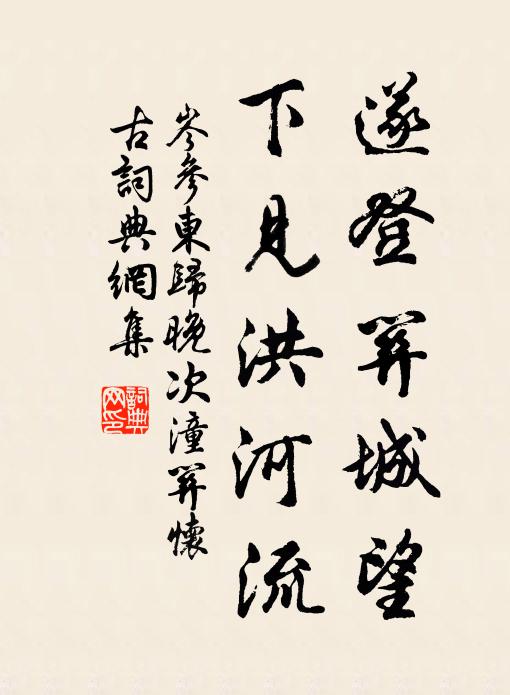 遂登關城望
下見洪河流
岑參東歸晚次潼關懷
古詞典網集
詞典网印